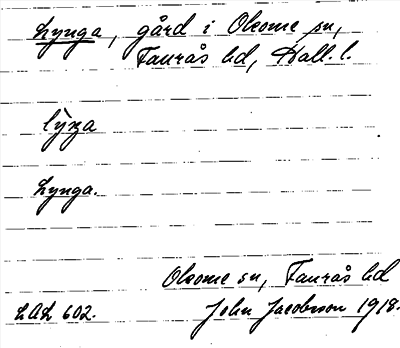 Lynga, gård i Okome sn,
Faurås hd, Hall. l.
lyŋa
Lynga.
Okome sn, Faurås hd
LAL 602.
John Jacobsson 1918.